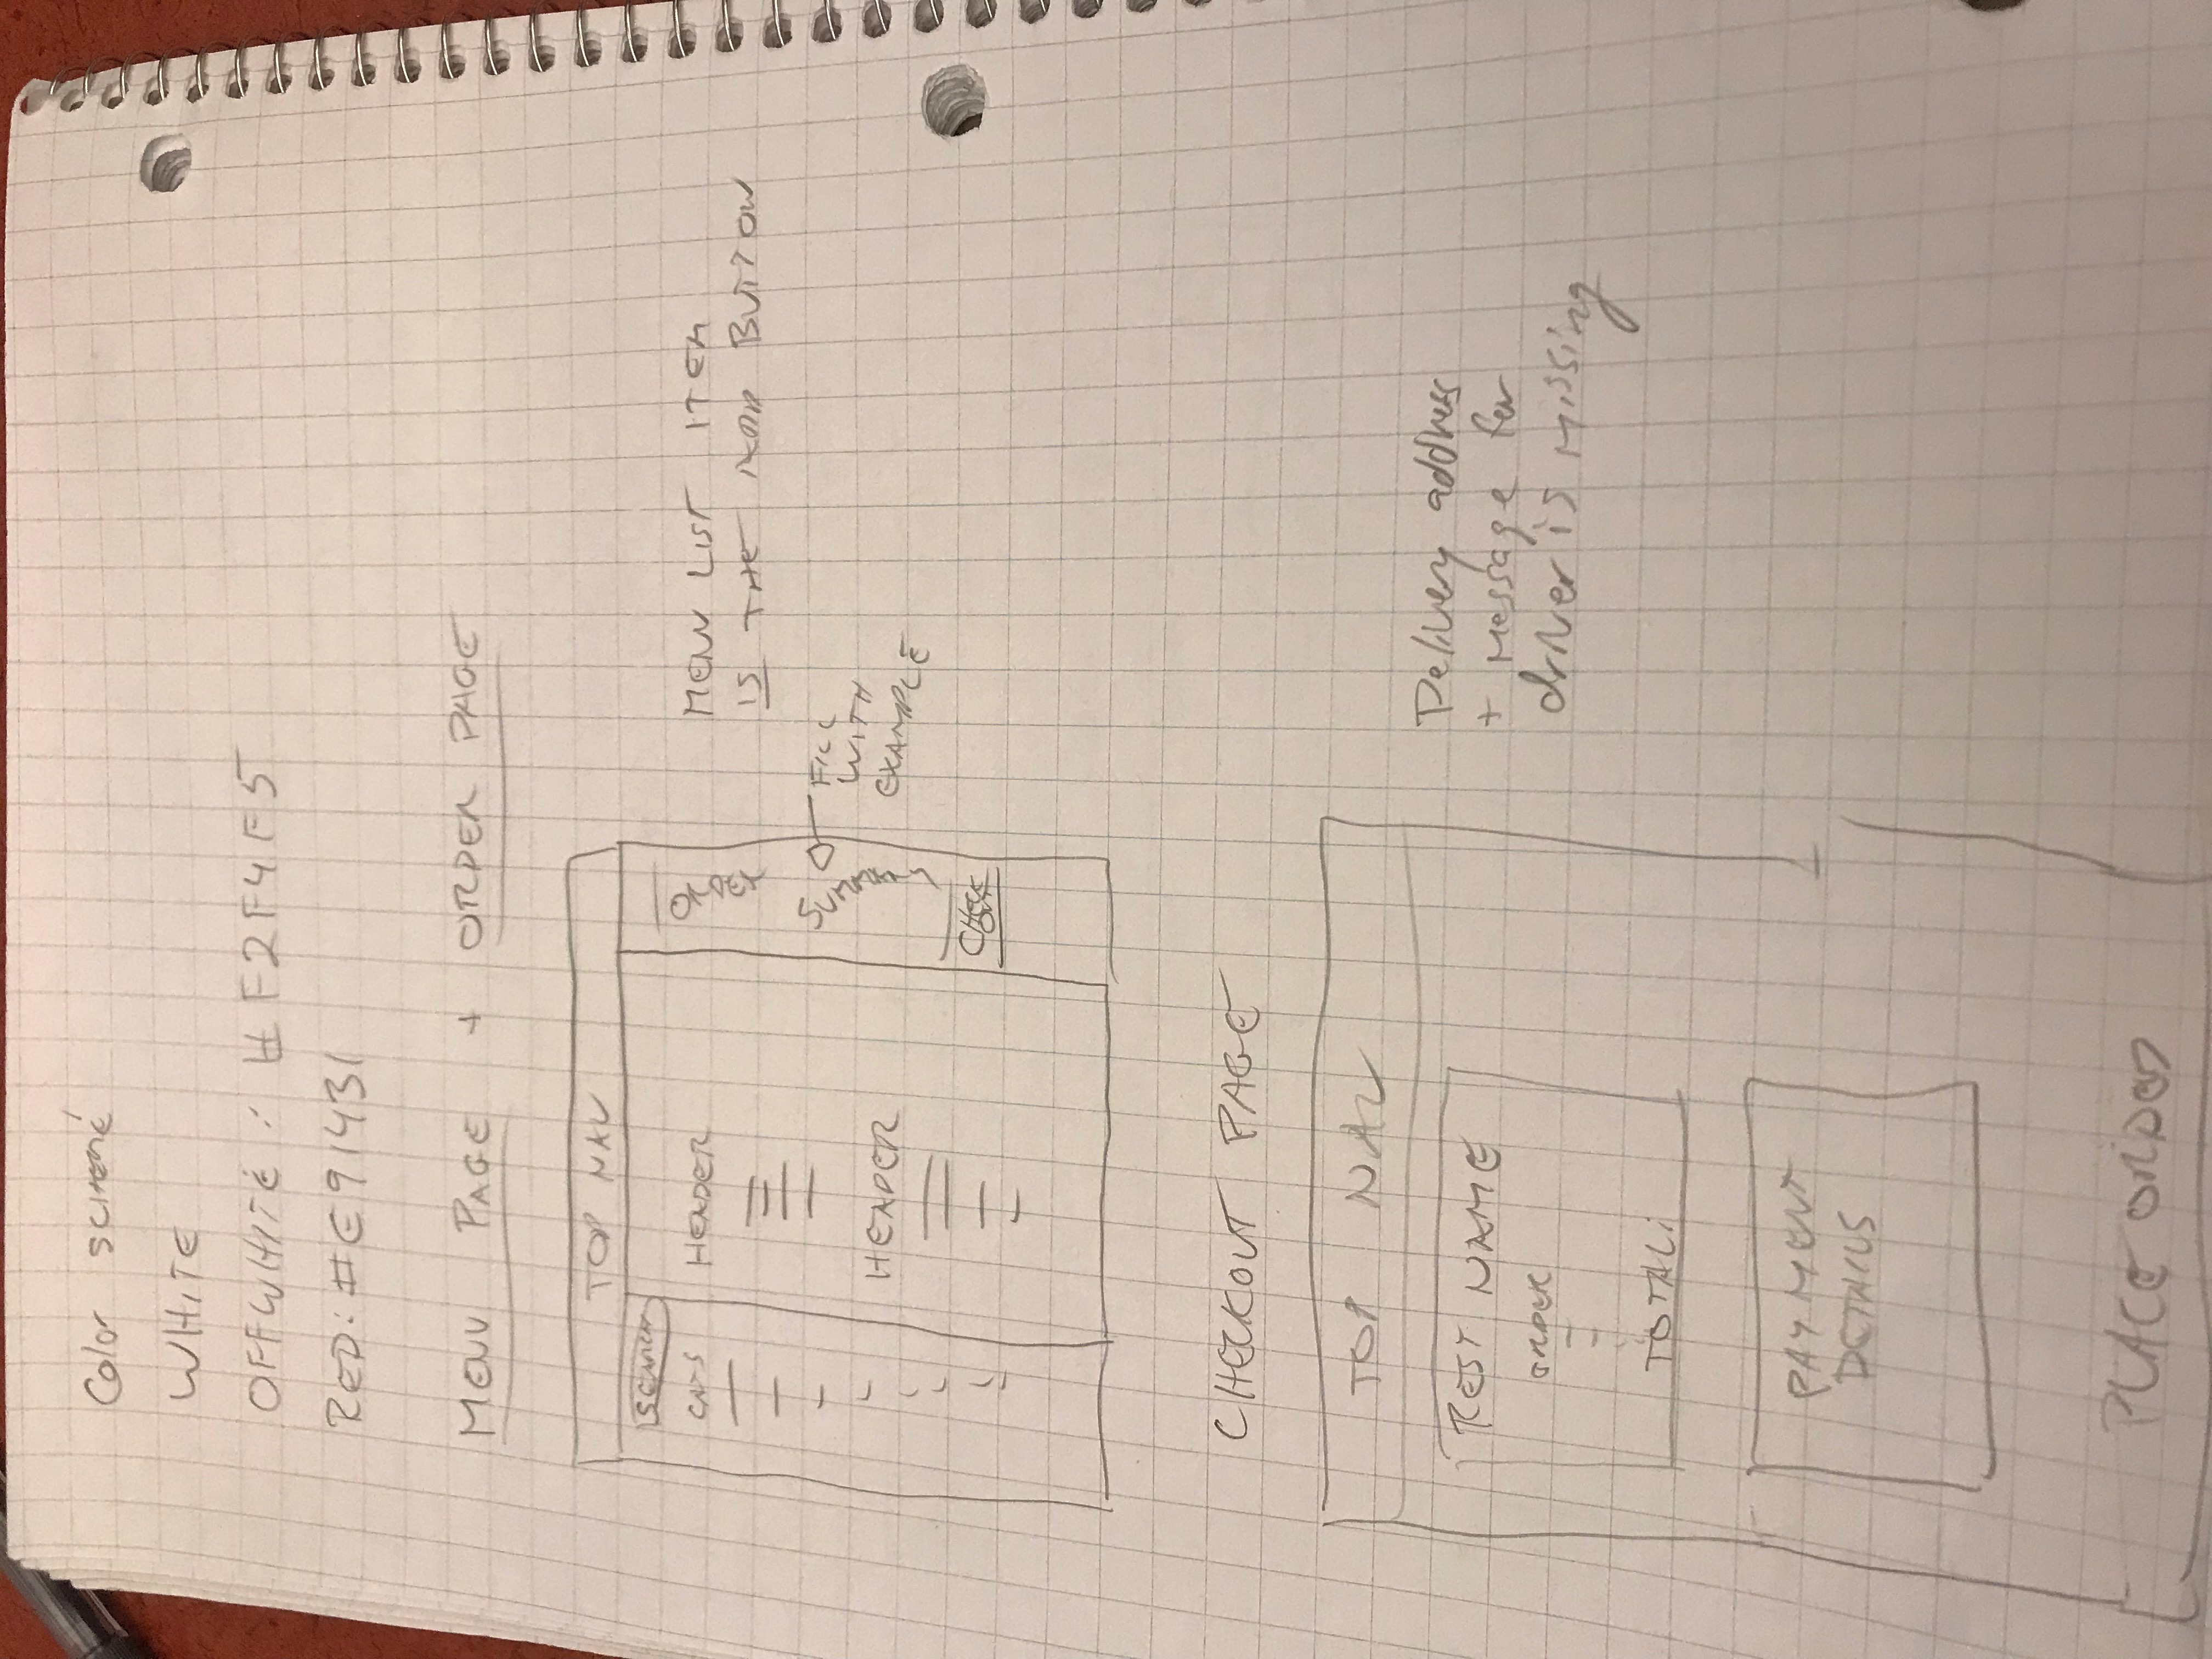 Color SCHEME
WHITE
OFFWHITE : #F2F4F5
RED: #E91431
MENU PAGE + ORDER PAGE
TOP NAV
SEARCH
CATS
HEADER
HEADER
ORDER
SUMMARY
CHECK
OUT
MENU LIST ITEM
IS THE ADD BUTTON
FILL
WITH
EXAMPLE
CHECKOUT PAGE
TOP NAV
REST NAME
ORDER
TOTAL:
PAYMENT
DETAILS
PLACE ORDER
Delivery address
+ message for
driver is missing